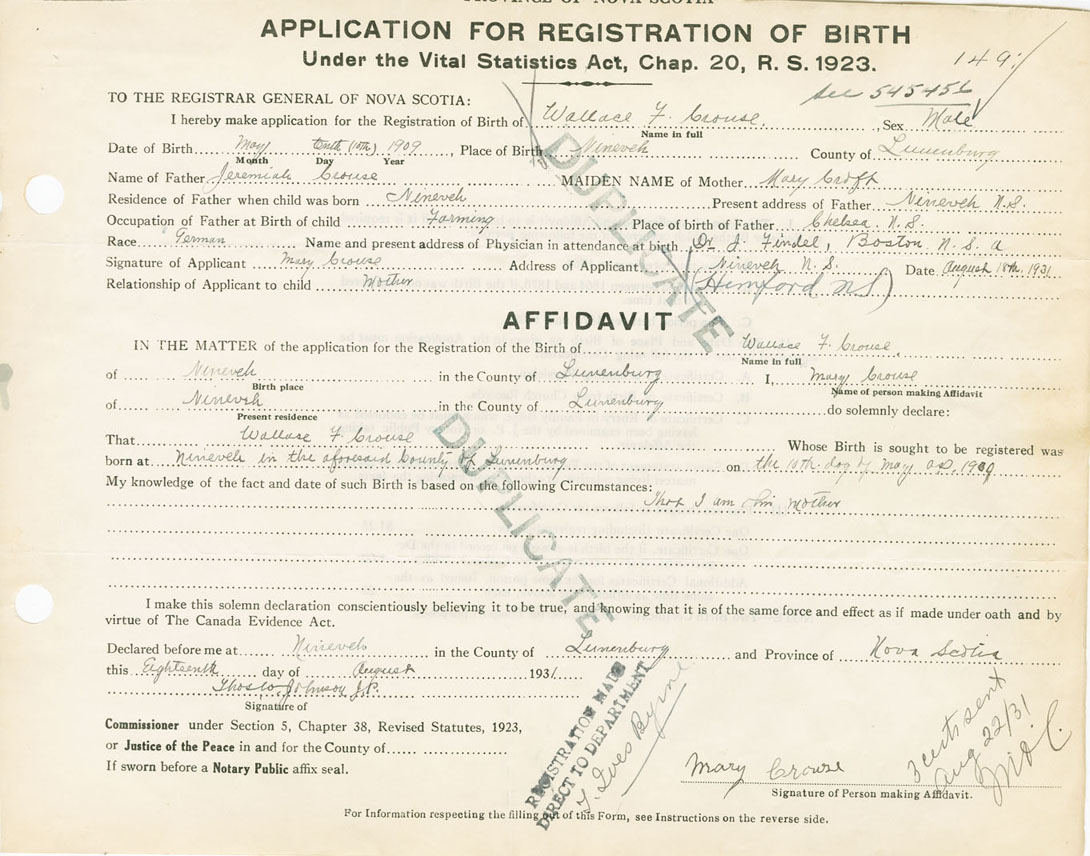 PROVINCE OF NOVA SCOTIA
APPLICATION FOR REGISTRATION OF BIRTH
Under the Vital Statistics Act, Chap. 20, R. S. 1923.
149
See 545456
TO THE REGISTRAR GENERAL OF NOVA SCOTIA:
I hereby make application for the Registration of Birth of Wallace F. Crouse. , Sex Male
Name in full
Date of Birth May tenth (10th) 1909 , Place of Birth Nineveh County of Lunenburg
Month Day Year
Name of Father Jeremiah Crouse MAIDEN NAME of Mother Mary Croft
Residence of Father when child was born Nineveh Present address of Father Nineveh N.S.
Occupation of Father at Birth of child Farming Place of birth of Father Chelsea N.S.
Race German Name and present address of Physician in attendance at birth Dr. J. Findel, Boston N. S. a
Signature of Applicant Mary Crouse Address of Applicant Nineveh N. S. Date August 18th. 1931.
Relationship of Applicant to child Mother (Hemford NS)
DUPLICATE
AFFIDAVIT
IN THE MATTER of the application for the Registration of the Birth of Wallace F. Crouse.
Name in full
of Nineveh in the County of Lunenburg I, Mary Crouse
Birth place Name of person making Affidavit
of Nineveh in the County of Lunenburg do solemnly declare:
Present residence
That Wallace F Crouse Whose Birth is sought to be registered was
born at Nineveh in the aforesaid County of Lunenburg on the 10th. day of May A.D. 1909
My knowledge of the fact and date of such Birth is based on the following Circumstances:
That I am his mother
DUPLICATE
I make this solemn declaration conscientiously believing it to be true, and knowing that it is of the same force and effect as if made under oath and by
virtue of The Canada Evidence Act.
Declared before me at Nineveh in the County of Lunenburg and Province of Nova Scotia
this Eighteenth day of August 1931
Johnson J.P.
Signature of
Commissioner under Section 5, Chapter 38, Revised Statutes, 1923,
or Justice of the Peace in and for the County of
If sworn before a Notary Public affix seal.
REGISTRATION MADE
DIRECT TO DEPARTMENT
Byrne
3 certs sent
Aug 22/31
Mary Crouse
Signature of Person making Affidavit.
For Information respecting the filling out of this Form, see Instructions on the reverse side.